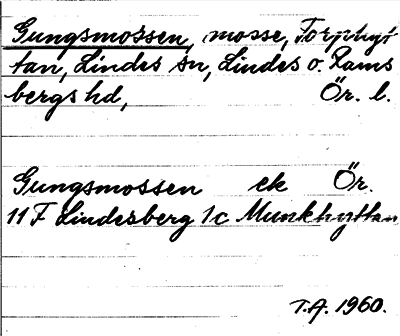 Gungsmossen, mosse, Torphyt
tan, Lindes sn, Lindes o. Rams
bergs hd, Ör. l.
Gungsmossen ek Ör.
11 F Lindesberg 1c Munkhyttan
T.A. 1960.